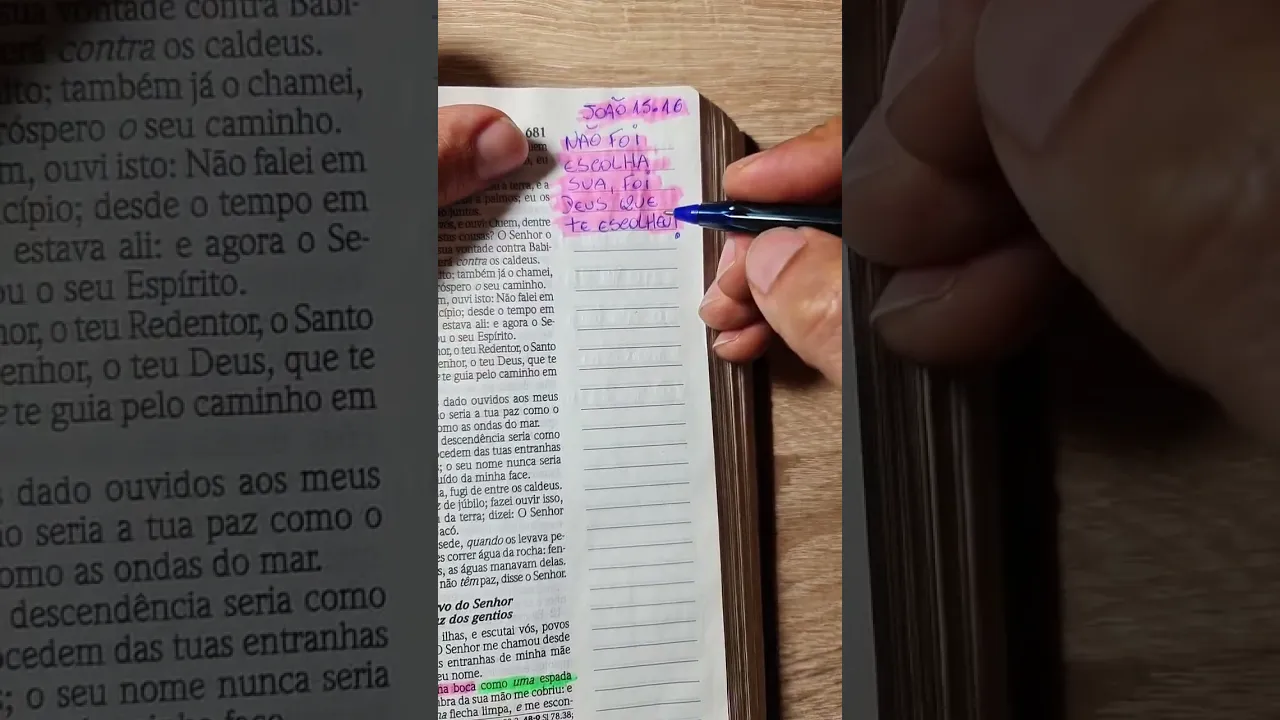 sua vontade contra Babi-
contra os caldeus.
também já o chamei,
o seu caminho.
ouvi isto: Não falei em
desde o tempo em
estava ali: e agora o Se-
o seu Espírito.
o teu Redentor, o Santo
o teu Deus, que te
te guia pelo caminho em
dado ouvidos aos meus
seria a tua paz como o
como as ondas do mar.
descendência seria como
das tuas entranhas
o seu nome nunca seria
681
JOÃO 15.16
NÃO FOI
ESCOLHA
SUA, FOI
DEUS QUE
TE ESCOLHEU!
a terra, e a
a palmos; eu os
juntos.
vós, e ouvi: Quem, dentre
estas cousas? O Senhor o
sua vontade contra Babi-
contra os caldeus.
também já o chamei,
róspero o seu caminho.
m, ouvi isto: Não falei em
cípio; desde o tempo em
estava ali: e agora o Se-
u o seu Espírito.
or, o teu Redentor, o Santo
enhor, o teu Deus, que te
e te guia pelo caminho em
dado ouvidos aos meus
o seria a tua paz como o
omo as ondas do mar.
descendência seria como
cedem das tuas entranhas
; o seu nome nunca seria
uído da minha face.
a, fugi de entre os caldeus.
z de júbilo; fazei ouvir isso,
da terra; dizei: O Senhor
acó.
sede, quando os levava pe-
es correr água da rocha: fen-
s, as águas manavam delas.
não têm paz, disse o Senhor.
vo do Senhor
uz dos gentios
ilhas, e escutai vós, povos
O Senhor me chamou desde
s entranhas de minha mãe
eu nome.
na boca como uma espada
mbra da sua mão me cobriu: e
na flecha limpa, e me escon-